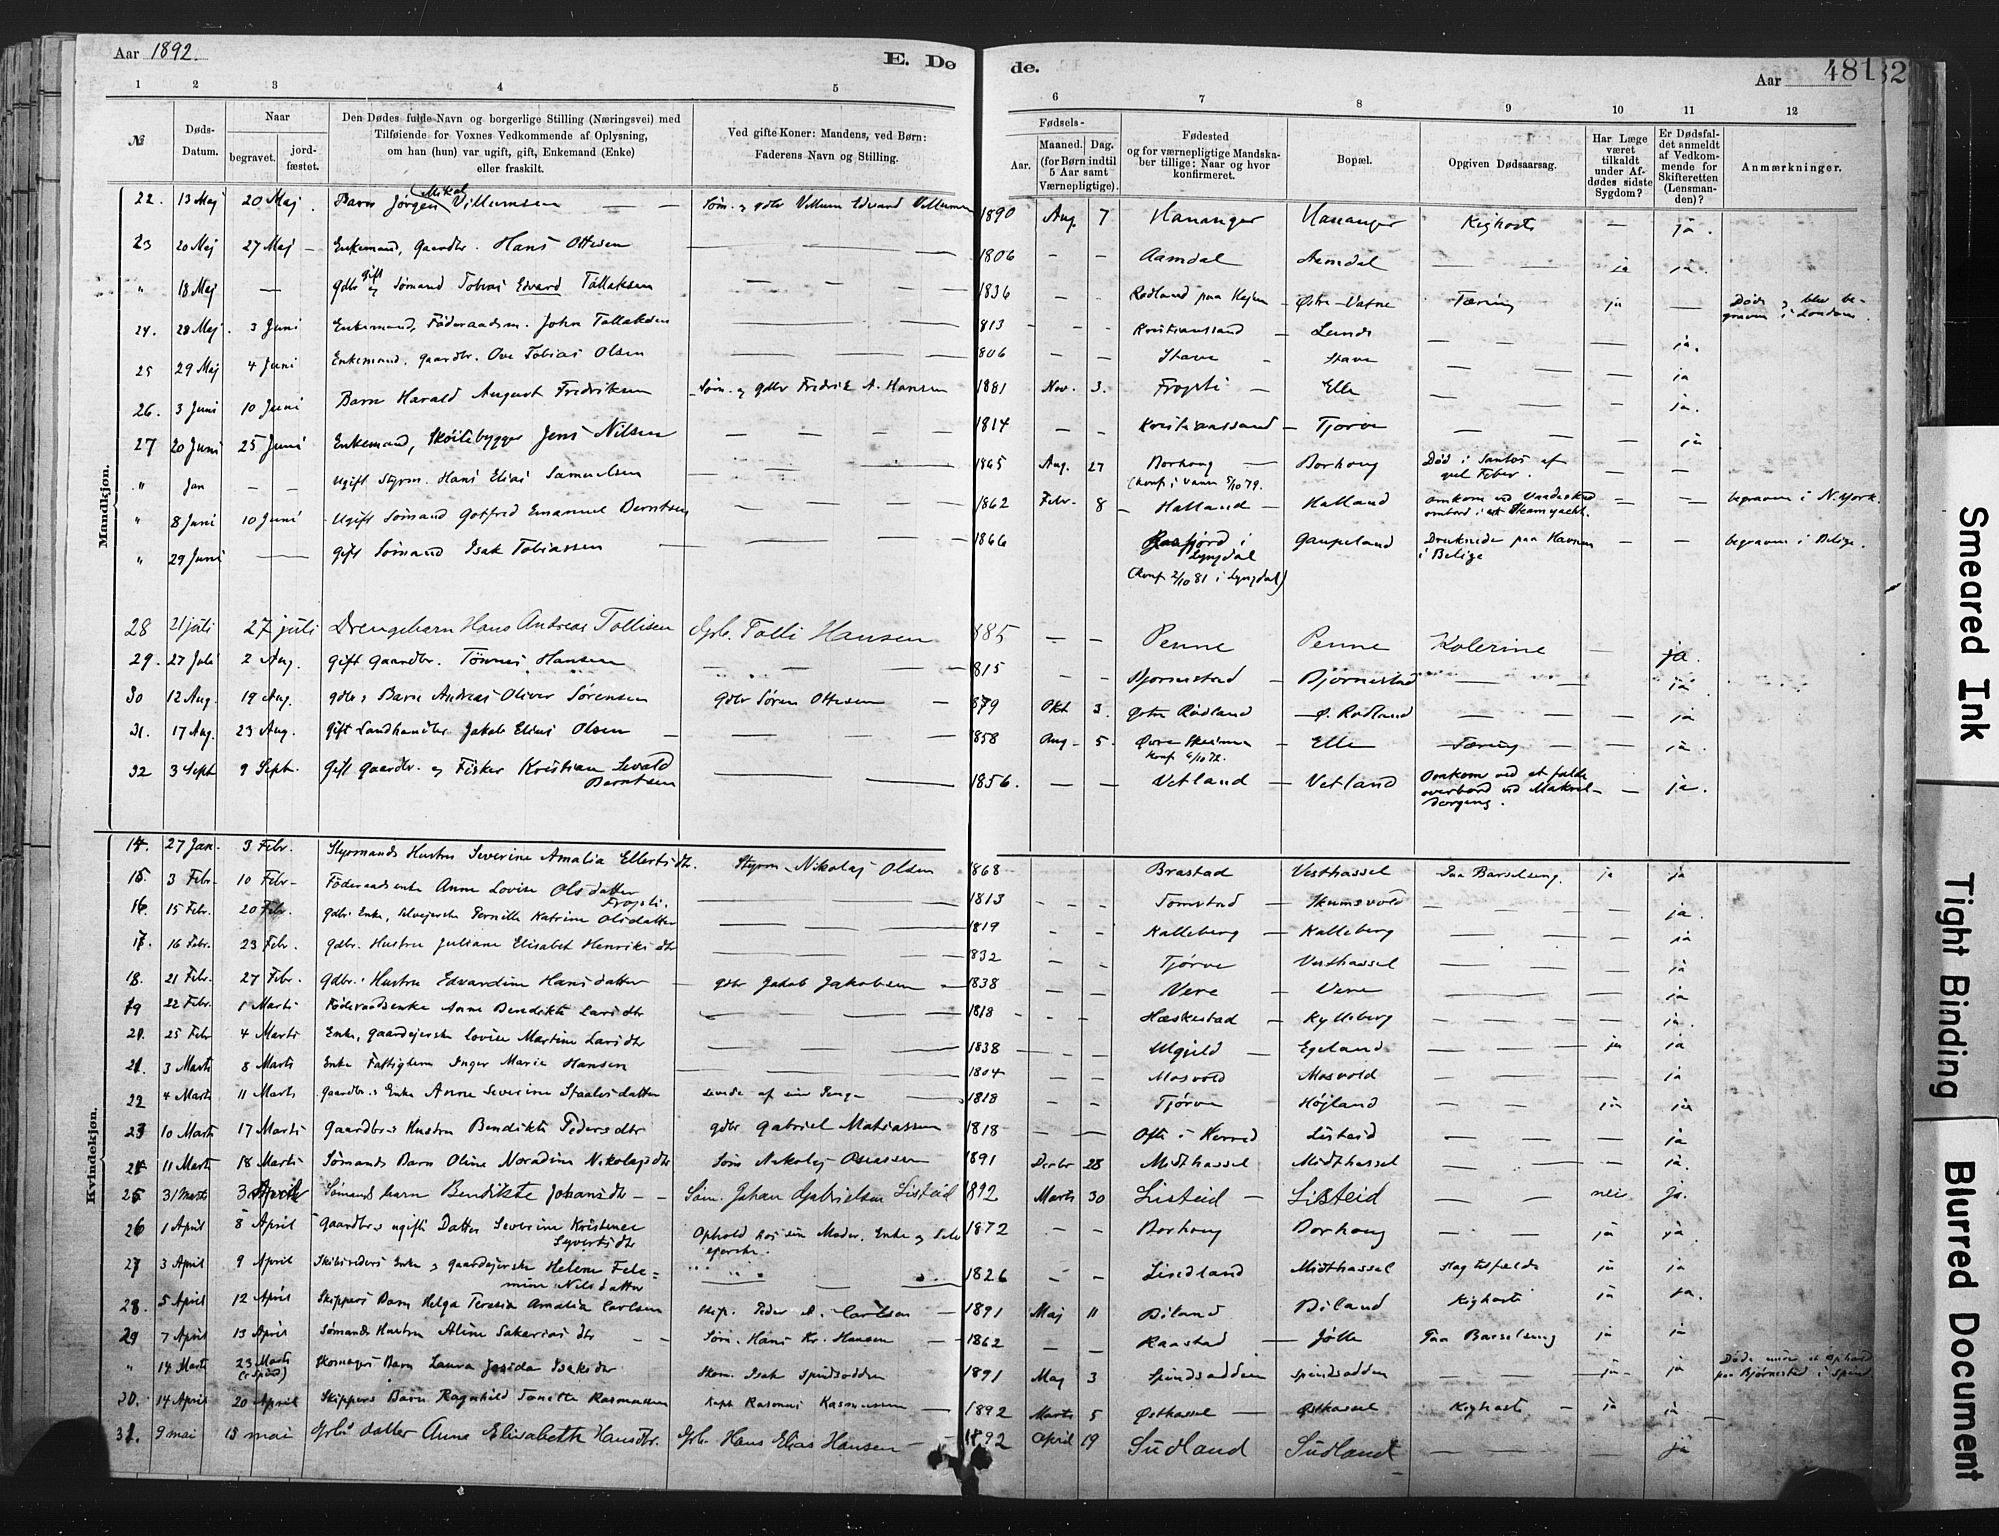 Aar 1892.
E. Dø
de.
Aar
481
32
1 2 3 4 5 6 7 8 9 10 11 12
№
Døds-
Datum.
Naar
begravet.
jord-
fæstet.
Den Dødes fulde Navn og borgerlige Stilling (Næringsvei) med
Tilføiende for Voxnes Vedkommende af Oplysning,
om han (hun) var ugift, gift, Enkemand (Enke)
eller fraskilt.
Ved gifte Koner: Mandens, ved Børn:
Faderens Navn og Stilling.
Fødsels-
Aar.
Maaned. Dag.
(for Børn indtil
5 Aar samt
Værnepligtige).
Fødested
og for værnepligtige Mandska-
ber tillige: Naar og hvor
konfirmeret.
Bopæl.
Opgiven Dødsaarsag.
Har Læge
været
tilkaldt
under Af-
dødes sidste
Sygdom?
Er Dødsfal-
det anmeldt
af Vedkom-
mende for
Skifteretten
(Lensman-
den)?
Anmærkninger.
Mandkjøn.
22. 13 Maj 20 Maj. Barn Jörgen Mikal Villumsen — — Söm. og gdbr Villum Edvard Villumsen 1890 Aug. 7 Hananger Hananger Kighoste — ja.
23 20 Maj 27 Maj — Enkemand, Gaardbr. Hans Ottesen — — 1806 — — Aamdal Aamdal — — ja ja.
" 18 Maj — Gdbr gift og Sömand Tobias Edvard Tollaksen — — — 1836 — — Rødland paa — Østre-Vatne Tæring ja — Døde og blev be-
graven i London.
24. 28 Maj. 3 Juni Enkemand, Föderaadsm. John Tollaksen — — — 1813 — — Kristianssand — Lunde — — — ja.
25 29 Maj 4 Juni Enkemand, Gaardbr. Ove Tobias Olsen — — — 1806 — — Stave — Stave — — — ja
26. 3 Juni 10 Juni Barn Harald August Fredriksen Söm. og gdbr Fredrik A. Hansen 1881 Nov. 3. — Elle — — — ja.
27 20 Juni 25 Juni Enkemand, Skøitebygger Jens Nilsen — — — 1814 — — Kristianssand — Tjörve — — — ja
" Jan — — Ugift Styrm. Hans Elias Samuelsen — — 1865 Aug. 27 Borhoug — Borhoug Död i Santos af
gul Feber. — —
(konf. i Vanse 5/10 79.
" 8 Juni 10 Juni Ugift Sömand Gotfred Emanuel Berntsen — — 1862 Febr. 8 — Halland — Halland omkom ved
ombord i — — begraven i N. York.
" 29 Juni — gift Sömand Isak Tobiassen — — 1866 i
Lyngdal Gaupeland Druknede paa Havnen
i Belize — — begraven i Belize.
(konf 2/10 81 i Lyngdal)
28 21 juli 27 juli Drengebarn Hans Andreas Tollisen Grb. Tolli Hansen 1885 — — Penne Penne Kolerine — ja.
29. 27 Juli 2 Aug. Gift gaardbr. Tönnes Hansen — — — 1815 — — Bjørnestad — Bjørnestad — — — ja
30 12 Aug. 19 Aug. gdbr.s Barn Andreas Oliver Sörensen gdbr Sören Ottesen — 1879 Okt 3. Østre Rødland — Ø. Rødland — — — ja
31. 17 Aug. 23 Aug. Gift Landhandler Jakob Elias Olsen — — 1858 Aug. 5. Øvre
konf 6/10 72. Elle — Tæring — — ja.
32 3 Sept 9 Sept. Gift gaardbr. og Fisker Kristian Sevald
Berntsen — — 1856. — — Vetland — Vetland Omkom ved at falde
overbord ved Makrel-
dorgning. — ja.
Kvindekjøn.
14. 27 Jan. 3 Febr. Styrmands Hustru Severine Amalia Ellertsdtr. Styrm. Nikolaj Olsen 1868 Brastad Vesthassel Paa Barselseng. ja ja
15 3 Febr. 10 Febr. Föderaadsenke Anne Lovise Olsdatter
— — — 1813 — — Tomstad — Skumsvold — — — ja.
16. 15 Febr. 20 Febr. gdbr. Enke, Selvejerske Pernille Katrine Olsdatter — — 1819 — — Kalleberg — Kalleberg — — — ja
17. 16 Febr. 23 Febr. gdbr. Hustru Juliane Elisabet Henriksdtr — — 1832 — — Tjörve Vesthassel — — — ja
18. 21 Febr. 27 Febr. Gdbr.s Hustru Edvardine Hansdatter — gdbr Jakob Jakobsen — 1838 — — Vere — Vere — — — ja
19 22 Febr. 1 Marts Föderaadsenke Anne Bendikte Larsdtr — — 1818 — — Hæskestad — Kylleberg — — — ja.
20. 25 Febr 4 Marts Enke, gaardejerske Lovise Martine Larsdtr — — 1838 — — Ulgjeld — Egeland — — ja ja
21. 3 Marts 8 Marts Enke Fattiglem Inger Marie Hansen — — 1804 — — Mosvold Mosvold — — — ja
22 4 Marts 11 Marts gaardbr.s Enke Anne Severine Staalesdatter levede af sine Penge — 1818 — — Tjörve Höjland — — ja ja
23 10 Marts 17 Marts Gaardbrs Hustru Bendikte Pedersdtr gdbr Gabriel Matiassen 1818 — — Ofte i Herred Listeid — — — ja
24 11 Marts 18 Marts Sömands Barn Oline Noradine Nikolajsdtr Söm Nikolaj Oseassen 1891 Decbr 28 Midthassel Midthassel — — — ja.
25 31 Marts 3 April Sömands barn Bendikte Johansdtr — — Söm. Johan Gabrielsen Listeid 1892 Marts 30 Listeid — Listeid — — nei ja.
26 1 April 8 April Gaardbr.s ugifte Datter Severine Kristense
Syvertsdtr Ophold hos sin Moder, Enke og Selv-
ejerske. 1872 — — Borhoug Borhoug — — ja ja
27 3 April 9 April Enke og gaardejerske Helene Fele=
mine Nilsdatter — — 1826 — — Lindland Midthassel Slagtilfælde ja ja
28. 5 April 12 April Skippers Barn Helga Teresia Amalia Carlsen Skip. Peder A. Carlsen — 1891 Maj 11 Biland Biland Kighoste ja ja.
29 7 April 13 April Sömands Hustru Aline Sakariasdtr — — Söm. Hans Kr. Hansen — 1862 — — Raastad — Jölle Paa Barselseng ja ja
" 14 Marts 23 Marts
(i Spind) Skomagers Barn Laura Josida Isaksdtr Skom. Isak Spindsodden 1891 Maj 3 Spindsodden Spindsodden — — ja ja Döde under et Ophold
paa Bjørnestad i Spind
30. 14 April 20 April Skippers Barn Ragnhild Tonette Rasmussen Kapt Rasmus Rasmussen — 1892 Marts 5 Østhassel — Østhassel Kighoste ja ja
31. 9 mai 15 mai Grbs datter Anna Elisabeth Hansdtr. Grb. Hans Elias Hansen — 1892 April 19 Sudland Sudland — — — ja
Smeared Ink
Tight Binding
Blurred Document